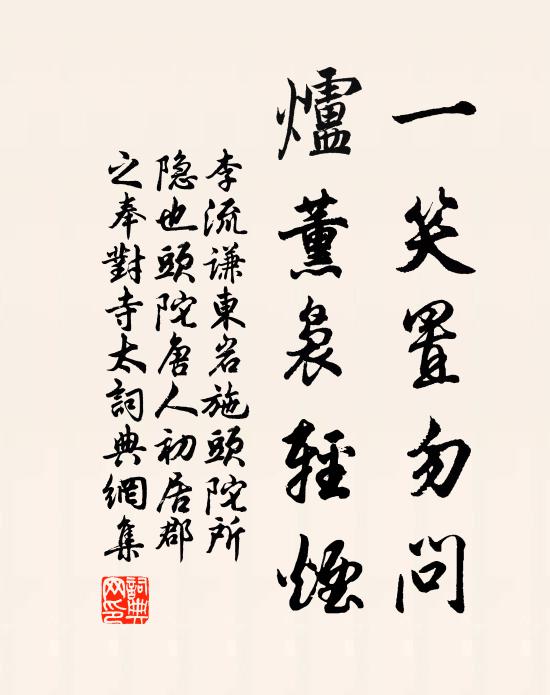 一笑置勿问
爐薰裊輕煙
李流谦東岩施頭陀所
隐也頭陀唐人初居郡
之奉對寺太詞典網集
詞典网印